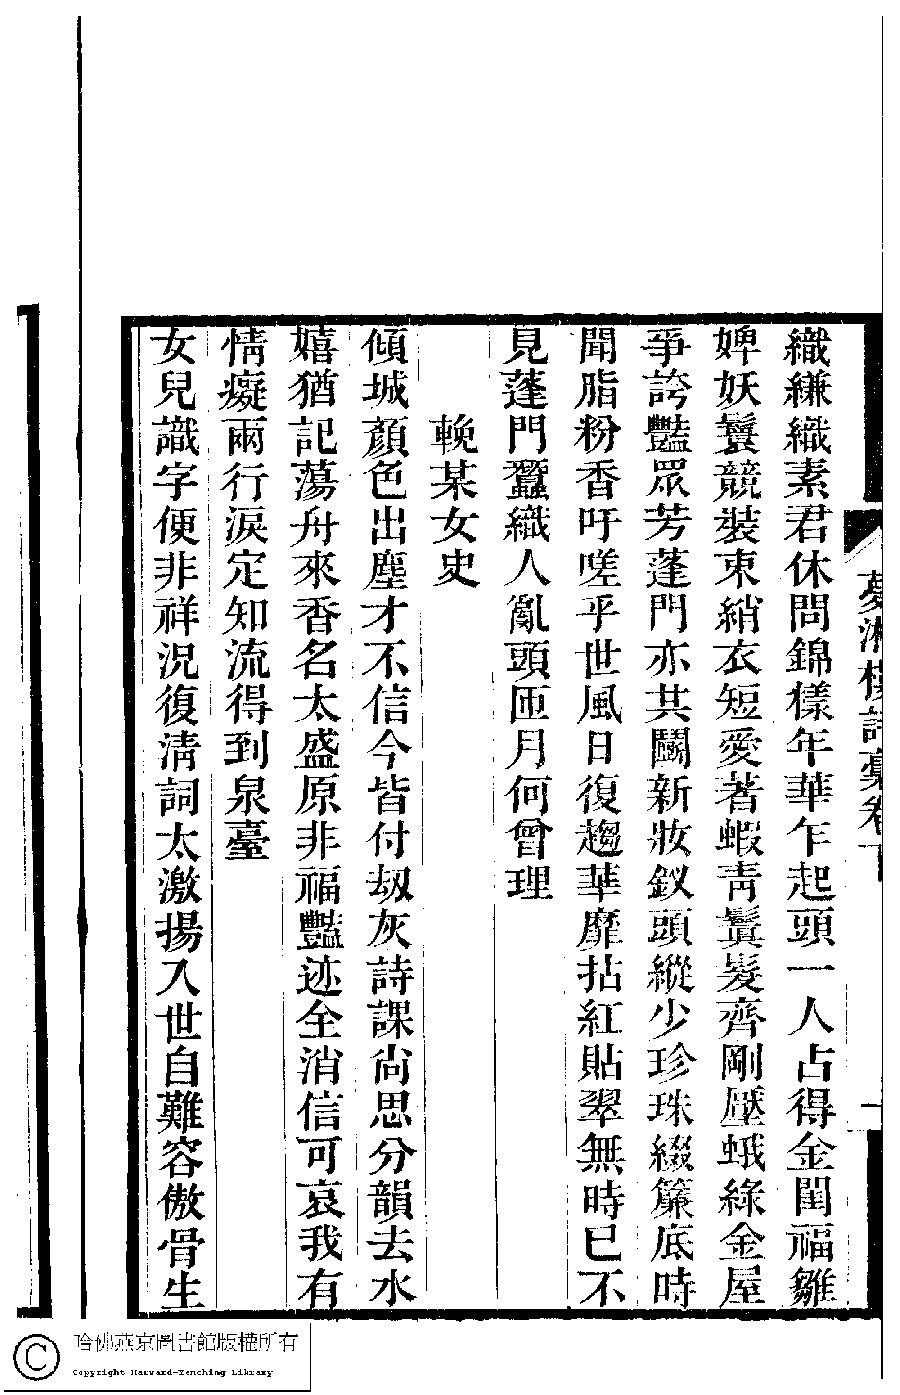 夢湘樓詩稾卷下
一
織縑織素君休問錦樣年華乍起頭一人占得金閨福雛
婢妖鬟競裝束綃衣短愛著蝦青鬒髮齊剛壓蛾綠金屋
爭誇豔眾芳蓬門亦共鬭新妝釵頭縱少珍珠綴簾底時
聞脂粉香吁嗟乎世風日復趨華靡拈紅貼翠無時已不
見蓬門蠶織人亂頭匝月何曾理
輓某女史
傾城顏色出塵才不信今皆付劫灰詩課尚思分韻去水
嬉猶記蕩舟來香名太盛原非福豔迹全消信可哀我有
情癡兩行淚定知流得到泉臺
女兒識字便非祥況復清詞太激揚入世自難容傲骨生
哈佛燕京圖書館版權所有
Copyright Harvard-Yenching Library